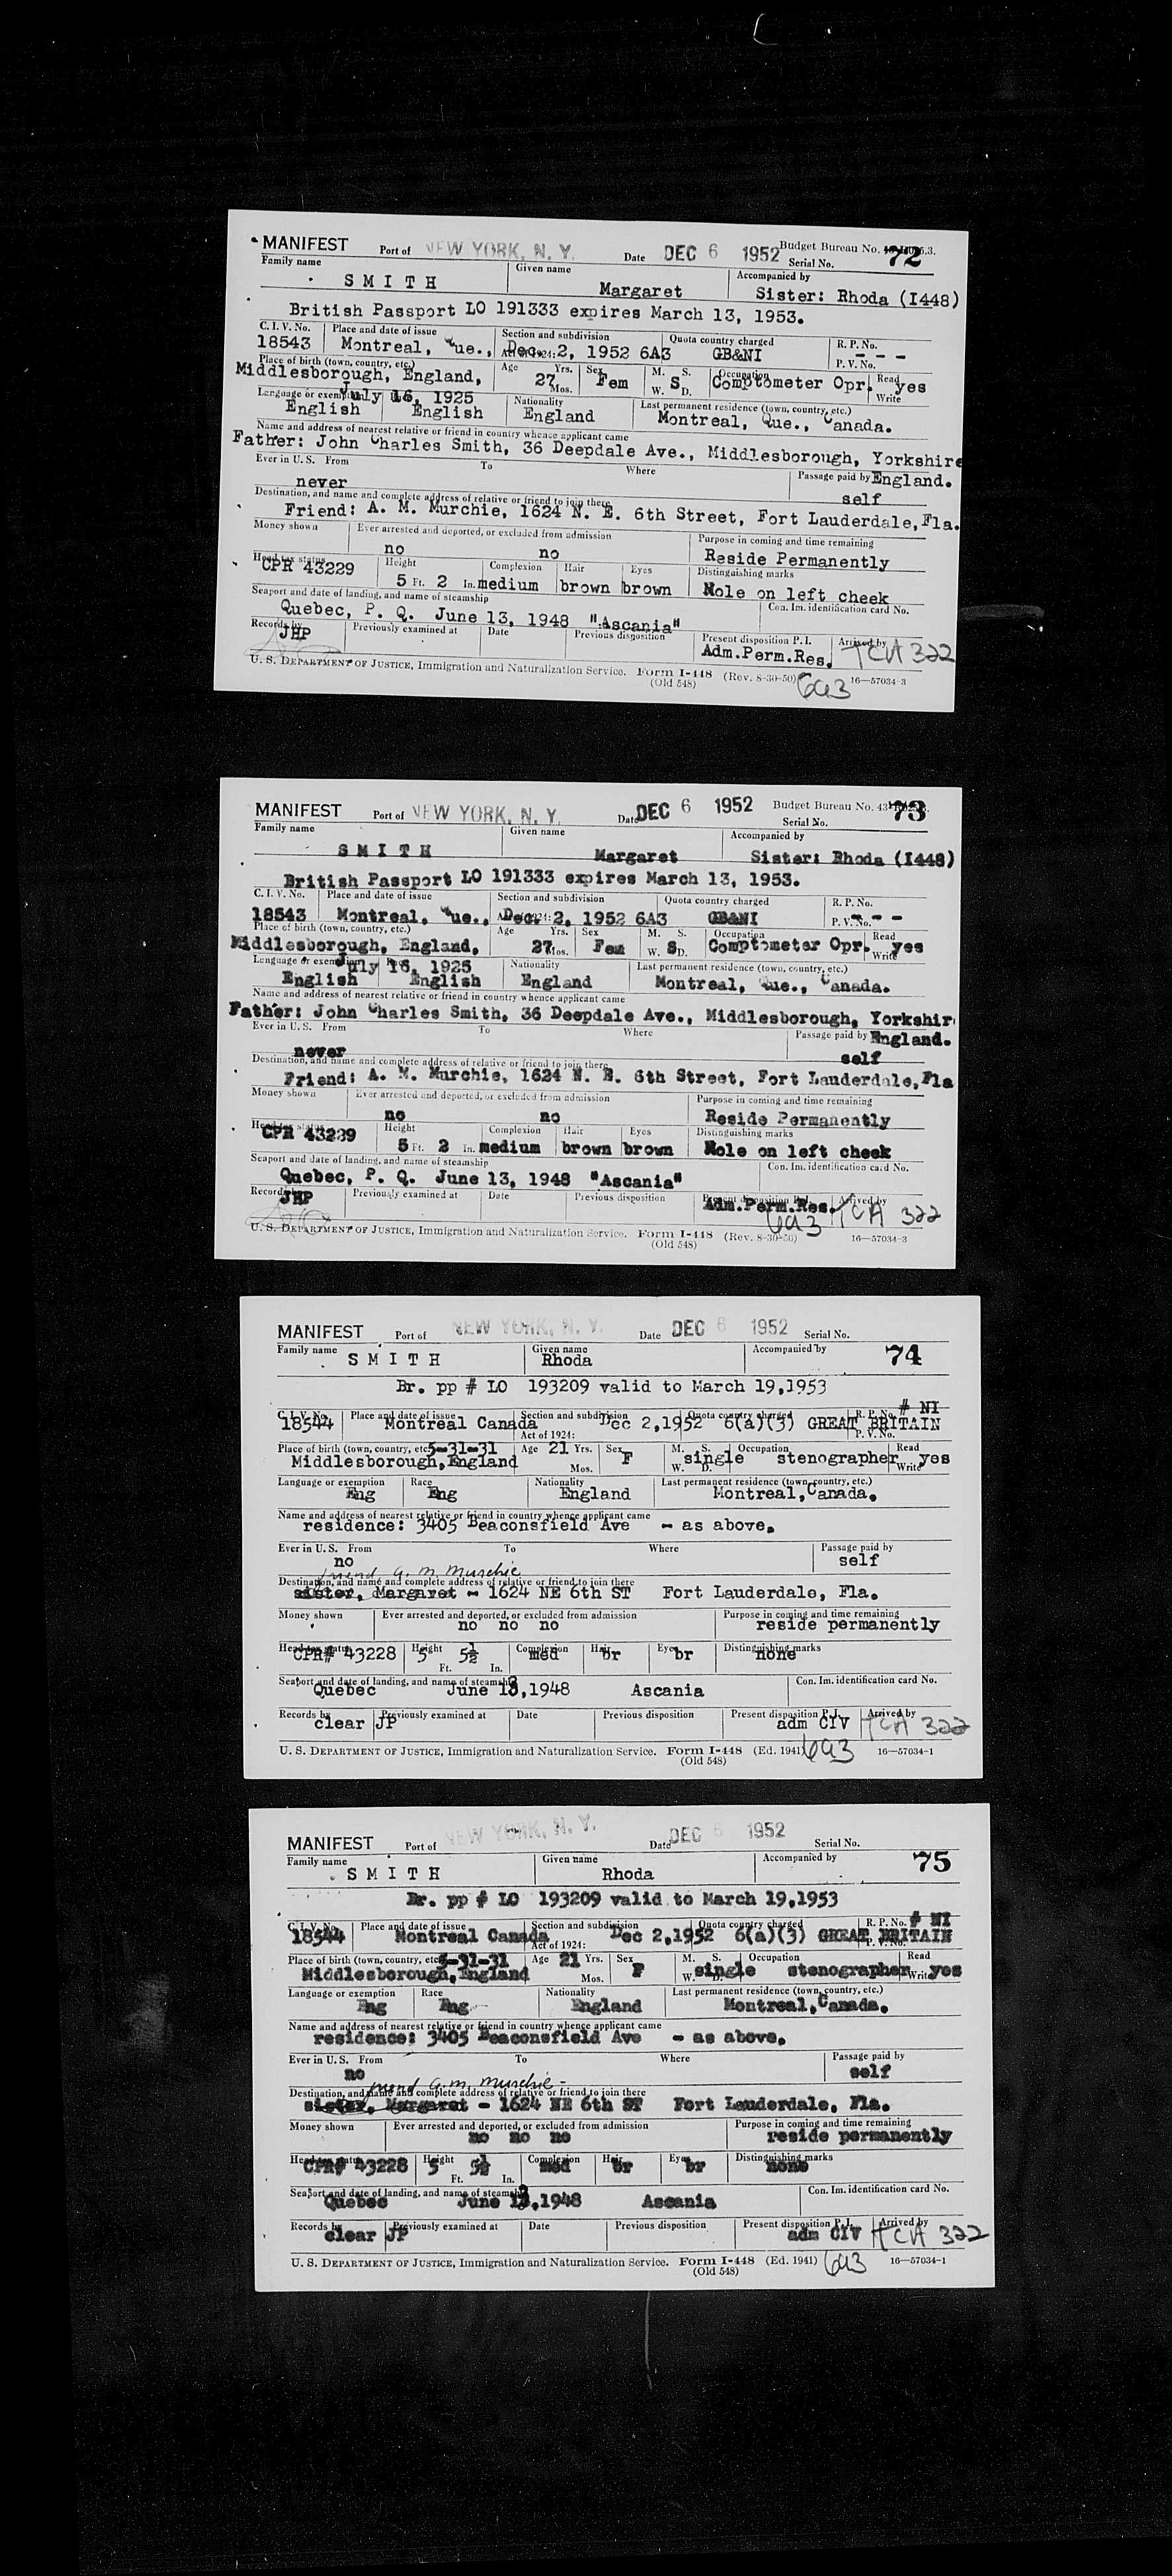 MANIFEST Port of NEW YORK, N. Y. Date DEC 6 1952 Budget Bureau No. 72
Family name Given name Serial No.
Accompanied by
SMITH Margaret Sister: Rhoda (I448)
British Passport LO 191333 expires March 13, 1953.
C. I. V. No. Place and date of issue Section and subdivision Quota country charged R. P. No.
18543 Montreal, Que., Dec. 2, 1952 6A3 GB&NI - - -
P. V. No.
Place of birth (town, country, etc.) Age Yrs. Sex M. S. Occupation Read
Middlesborough, England, 27 Mos. Fem W. S D. Comptometer Opr. yes
July 16, 1925 Write
Language or exemption Nationality Last permanent residence (town, country, etc.)
English English England Montreal, Que., Canada.
Name and address of nearest relative or friend in country whence applicant came
Father: John Charles Smith, 36 Deepdale Ave., Middlesborough, Yorkshire
Ever in U. S. From To Where Passage paid by England.
never self
Destination, and name and complete address of relative or friend to join there
Friend: A. M. Murchie, 1624 N. E. 6th Street, Fort Lauderdale, Fla.
Money shown Ever arrested and deported, or excluded from admission Purpose in coming and time remaining
no no Reside Permanently
Head tax status Height Complexion Hair Eyes Distinguishing marks
CPR 43229 5 Ft. 2 In. medium brown brown Mole on left cheek
Seaport and date of landing, and name of steamship Con. Im. identification card No.
Quebec, P. Q. June 13, 1948 "Ascania"
Records by Previously examined at Date Previous disposition Present disposition P. I. Arrived by
JHP Adm.Perm.Res. TCA 322
U. S. DEPARTMENT OF JUSTICE, Immigration and Naturalization Service. Form I-448 (Rev. 8-30-50) 6a3 16—57034-3
(Old 548)
MANIFEST Port of NEW YORK, N. Y. Date DEC 6 1952 Budget Bureau No. 73
Family name Given name Serial No.
Accompanied by
SMITH Margaret Sister: Rhoda (I448)
British Passport LO 191333 expires March 13, 1953.
C. I. V. No. Place and date of issue Section and subdivision Quota country charged R. P. No.
18543 Montreal, Que., Dec. 2, 1952 6A3 GB&NI P. V. No. - - -
Place of birth (town, country, etc.) Age Yrs. Sex M. S. Occupation Read
Middlesborough, England, 27 Mos. Fem W. S D. Comptometer Opr. yes
July 16, 1925 Write
Language or exemption Nationality Last permanent residence (town, country, etc.)
English English England Montreal, Que., Canada.
Name and address of nearest relative or friend in country whence applicant came
Father: John Charles Smith, 36 Deepdale Ave., Middlesborough, Yorkshir
Ever in U. S. From To Where Passage paid by England.
never self
Destination, and name and complete address of relative or friend to join there
Friend: A. M. Murchie, 1624 N. E. 6th Street, Fort Lauderdale, Fla
Money shown Ever arrested and deported, or excluded from admission Purpose in coming and time remaining
no no Reside Permanently
Head tax status Height Complexion Hair Eyes Distinguishing marks
CPR 43229 5 Ft. 2 In. medium brown brown Mole on left cheek
Seaport and date of landing, and name of steamship Con. Im. identification card No.
Quebec, P. Q. June 13, 1948 "Ascania"
Records by Previously examined at Date Previous disposition Present disposition P. I. Arrived by
JHP Adm.Perm.Res. TCA 322
6a3
U. S. DEPARTMENT OF JUSTICE, Immigration and Naturalization Service. Form I-448 (Rev. 8-30-50) 16—57034-3
(Old 548)
MANIFEST Port of NEW YORK, N. Y. Date DEC 6 1952 Serial No.
Family name Given name Accompanied by 74
SMITH Rhoda
Br. pp # LO 193209 valid to March 19,1953
# NI
C. I. V. No. Place and date of issue Section and subdivision Quota country charged R. P. No.
18544 Montreal Canada Dec 2,1952 6(a)(3) GREAT BRITAIN
Act of 1924: P. V. No.
Place of birth (town, country, etc.) 5-31-31 Age 21 Yrs. Sex M. S. Occupation Read
Middlesborough,England Mos. F W. single D. stenographer Write yes
Language or exemption Race Nationality Last permanent residence (town, country, etc.)
Eng Eng England Montreal,Canada.
Name and address of nearest relative or friend in country whence applicant came
residence: 3405 Beaconsfield Ave - as above.
Ever in U. S. From To Where Passage paid by
no self
friend A. M. Murchie
Destination, and name and complete address of relative or friend to join there
sister, Margaret - 1624 NE 6th ST Fort Lauderdale, Fla.
Money shown Ever arrested and deported, or excluded from admission Purpose in coming and time remaining
no no no reside permanently
Head tax status Height Complexion Hair Eyes Distinguishing marks
CPR# 43228 5 Ft. 5½ In. med br br none
Seaport and date of landing, and name of steamship Con. Im. identification card No.
Quebec June 13,1948 Ascania
Records by Previously examined at Date Previous disposition Present disposition P. I. Arrived by
clear JP adm CIV TCA 322
U. S. DEPARTMENT OF JUSTICE, Immigration and Naturalization Service. Form I-448 (Ed. 1941) 6a3 16—57034-1
(Old 548)
MANIFEST Port of NEW YORK, N. Y. Date DEC 6 1952 Serial No.
Family name Given name Accompanied by 75
SMITH Rhoda
Br. pp # LO 193209 valid to March 19,1953
# NI
C. I. V. No. Place and date of issue Section and subdivision Quota country charged R. P. No.
18544 Montreal Canada Dec 2,1952 6(a)(3) GREAT BRITAIN
Act of 1924: P. V. No.
Place of birth (town, country, etc.) 5-31-31 Age 21 Yrs. Sex M. S. Occupation Read
Middlesborough,England Mos. F W. single D. stenographer Write yes
Language or exemption Race Nationality Last permanent residence (town, country, etc.)
Eng Eng England Montreal,Canada.
Name and address of nearest relative or friend in country whence applicant came
residence: 3405 Beaconsfield Ave - as above.
Ever in U. S. From To Where Passage paid by
no self
friend A. M. Murchie
Destination, and name and complete address of relative or friend to join there
sister, Margaret - 1624 NE 6th ST Fort Lauderdale, Fla.
Money shown Ever arrested and deported, or excluded from admission Purpose in coming and time remaining
no no no reside permanently
Head tax status Height Complexion Hair Eyes Distinguishing marks
CPR# 43228 5 Ft. 5½ In. med br br none
Seaport and date of landing, and name of steamship Con. Im. identification card No.
Quebec June 13,1948 Ascania
Records by Previously examined at Date Previous disposition Present disposition P. I. Arrived by
clear JP adm CIV TCA 322
U. S. DEPARTMENT OF JUSTICE, Immigration and Naturalization Service. Form I-448 (Ed. 1941) 6a3 16—57034-1
(Old 548)